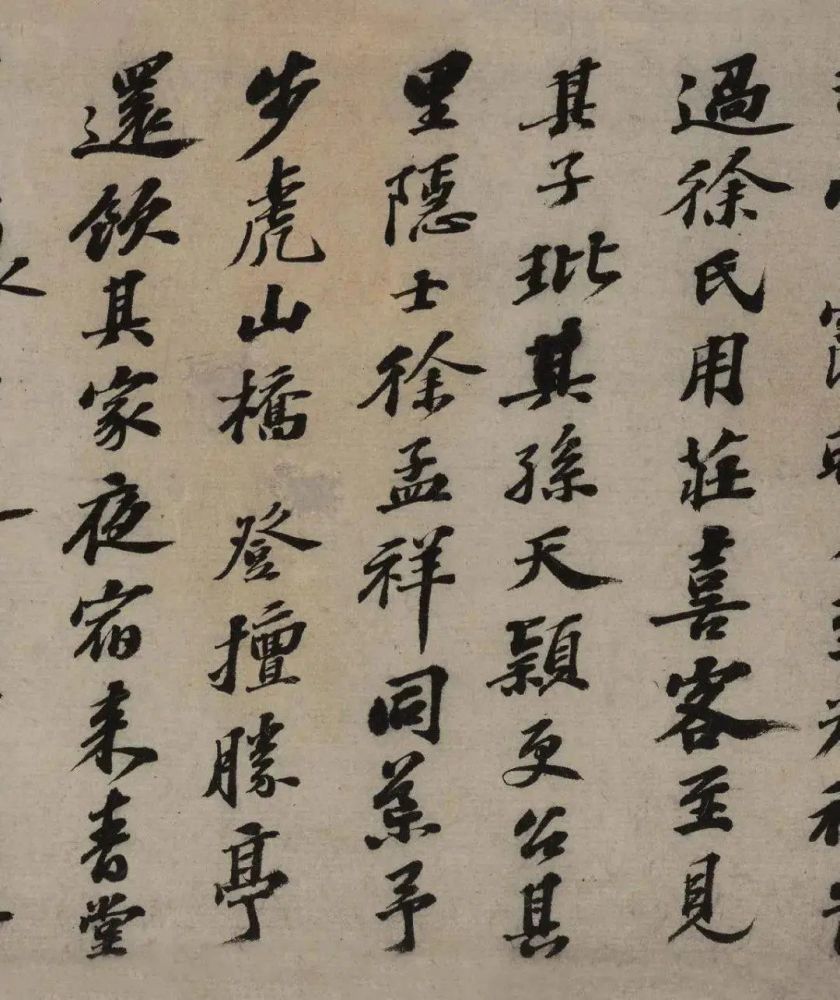 過徐氏用莊喜客至見
其子玭其孫天穎更召其
里隱士徐孟祥同葉予
步虎山橋登擅勝亭
還飲其家夜宿来青堂